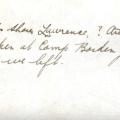 shows Lawrence. ? Au
ken at Camp Borden
we left.